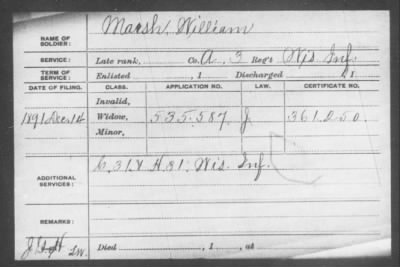 NAME OF SOLDIER: Marsh, William
SERVICE: Late rank, Co. A, 3 Reg't Wis Inf.
TERM OF SERVICE: Enlisted , 1 Discharged , 1
DATE OF FILING. CLASS. APPLICATION NO. LAW. CERTIFICATE NO.
Invalid,
1891 Dec 14 Widow, 535.587 J 361.250.
Minor,
ADDITIONAL SERVICES: G. 31 & H 31. Wis. Inf.
REMARKS:
Died , 1 , at